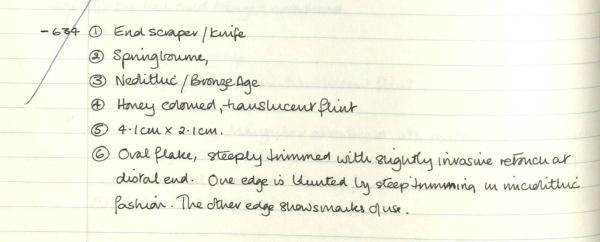 -634 ① End scraper/knife
② Springbourne,
③ Neolithic/Bronze Age
④ Honey coloured, translucent flint
⑤ 4.1cm x 2.1cm.
⑥ Oval flake, steeply trimmed with slightly invasive retouch at
distal end. One edge is blunted by steep trimming in microlithic
fashion. The other edge shows marks of use.